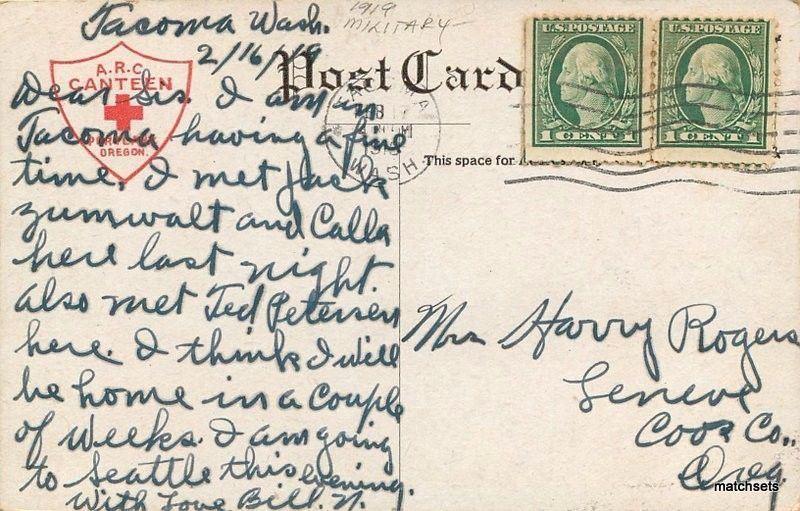 Tacoma Wash.
2/16/19
1919
MILITARY
A.R.C.
CANTEEN
OREGON.
Post Card
Dear Sis. I am in
Tacoma having a fine
time. I met Jack
Zumwalt and Calla
here last night.
also met Ted Petersen
here. I think I will
be home in a couple
of weeks. I am going
to Seattle this evening.
With Love Bill. N.
WASH.
This space for
U.S. POSTAGE
1 CENT 1
U.S. POSTAGE
1 CENT 1
Mrs Harry Rogers
Geneve
Coos Co..
Oreg.
matchsets